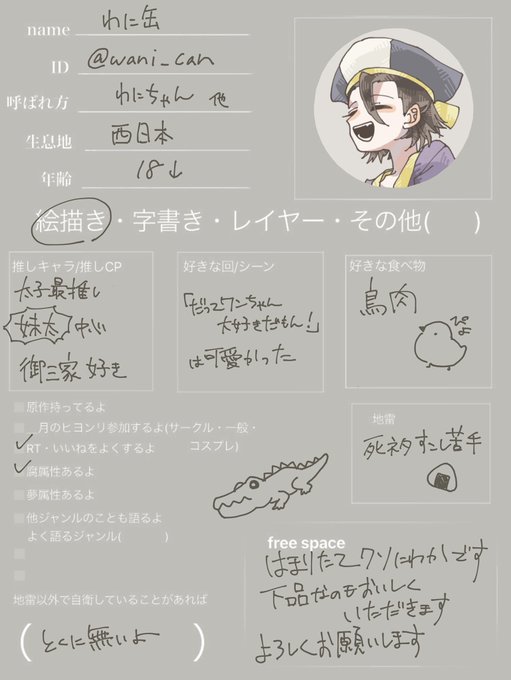 name わに缶
ID @wani_can
呼ばれ方 わにちゃん 他
生息地 西日本
年齢 18↓
絵描き・字書き・レイヤー・その他( )
推しキャラ/推しCP
太子最推し
妹太 中心
御三家 好き
好きな回/シーン
「だってワンちゃん
大好きだもん!」
は可愛かった
好きな食べ物
鳥肉
ぴよ
原作持ってるよ
__月のヒヨンリ参加するよ(サークル・一般・
コスプレ)
RT・いいねをよくするよ
腐属性あるよ
夢属性あるよ
他ジャンルのことも語るよ
よく語るジャンル( )
地雷
死ネタすこし苦手
地雷以外で自衛していることがあれば
(とくに無いよ)
free space
はまりたてクソにわかです
下品なのもおいしく
いただきます
よろしくお願いします